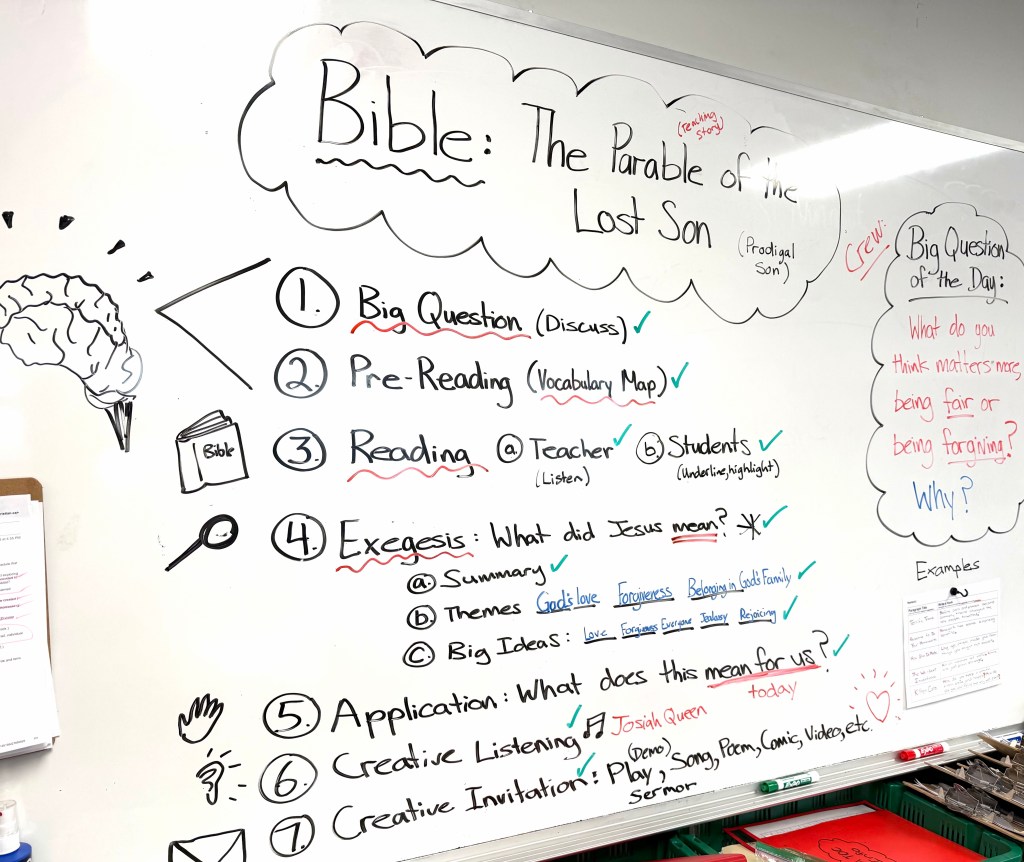 Bible: The Parable of the
(Teaching
story)
Lost Son
(Prodigal
Son)
1. Big Question (Discuss) ✓
2. Pre-Reading (Vocabulary Map) ✓
Bible
3. Reading a. Teacher ✓ b. Students ✓
(Listen) (Underline, highlight)
4. Exegesis: What did Jesus mean? ✓
a. Summary ✓
b. Themes God's love Forgiveness Belonging in God's Family ✓
c. Big Ideas: Love Forgiveness Everyone Jealousy Rejoicing ✓
5. Application: What does this mean for us? ✓
today
6. Creative Listening ✓ Josiah Queen
7. Creative Invitation ✓: Play, Song, Poem, Comic, Video, etc.
(Demo)
Sermor
Crew:
Big Question
of the Day:
What do you
think matters more,
being fair or
being forgiving?
Why?
Examples